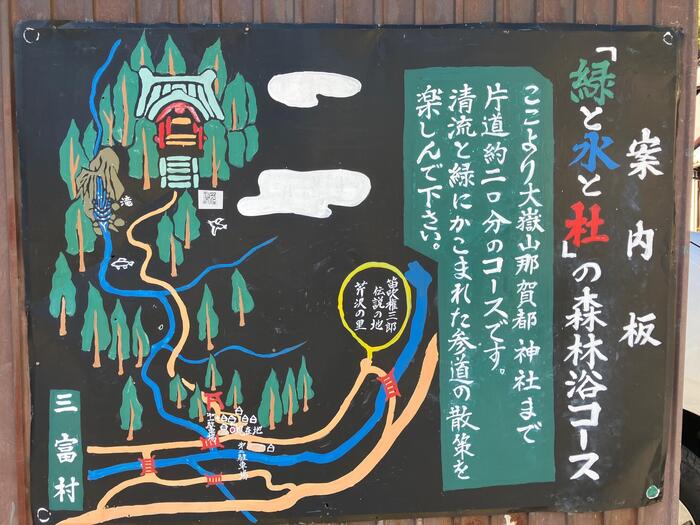 案内板
「緑と水と杜」の森林浴コース
ここより大嶽山那賀都神社まで
片道約二〇分のコースです。
清流と緑にかこまれた参道の散策を
楽しんで下さい。
笛吹権三郎
伝説の地
芹沢の里
滝
三富村